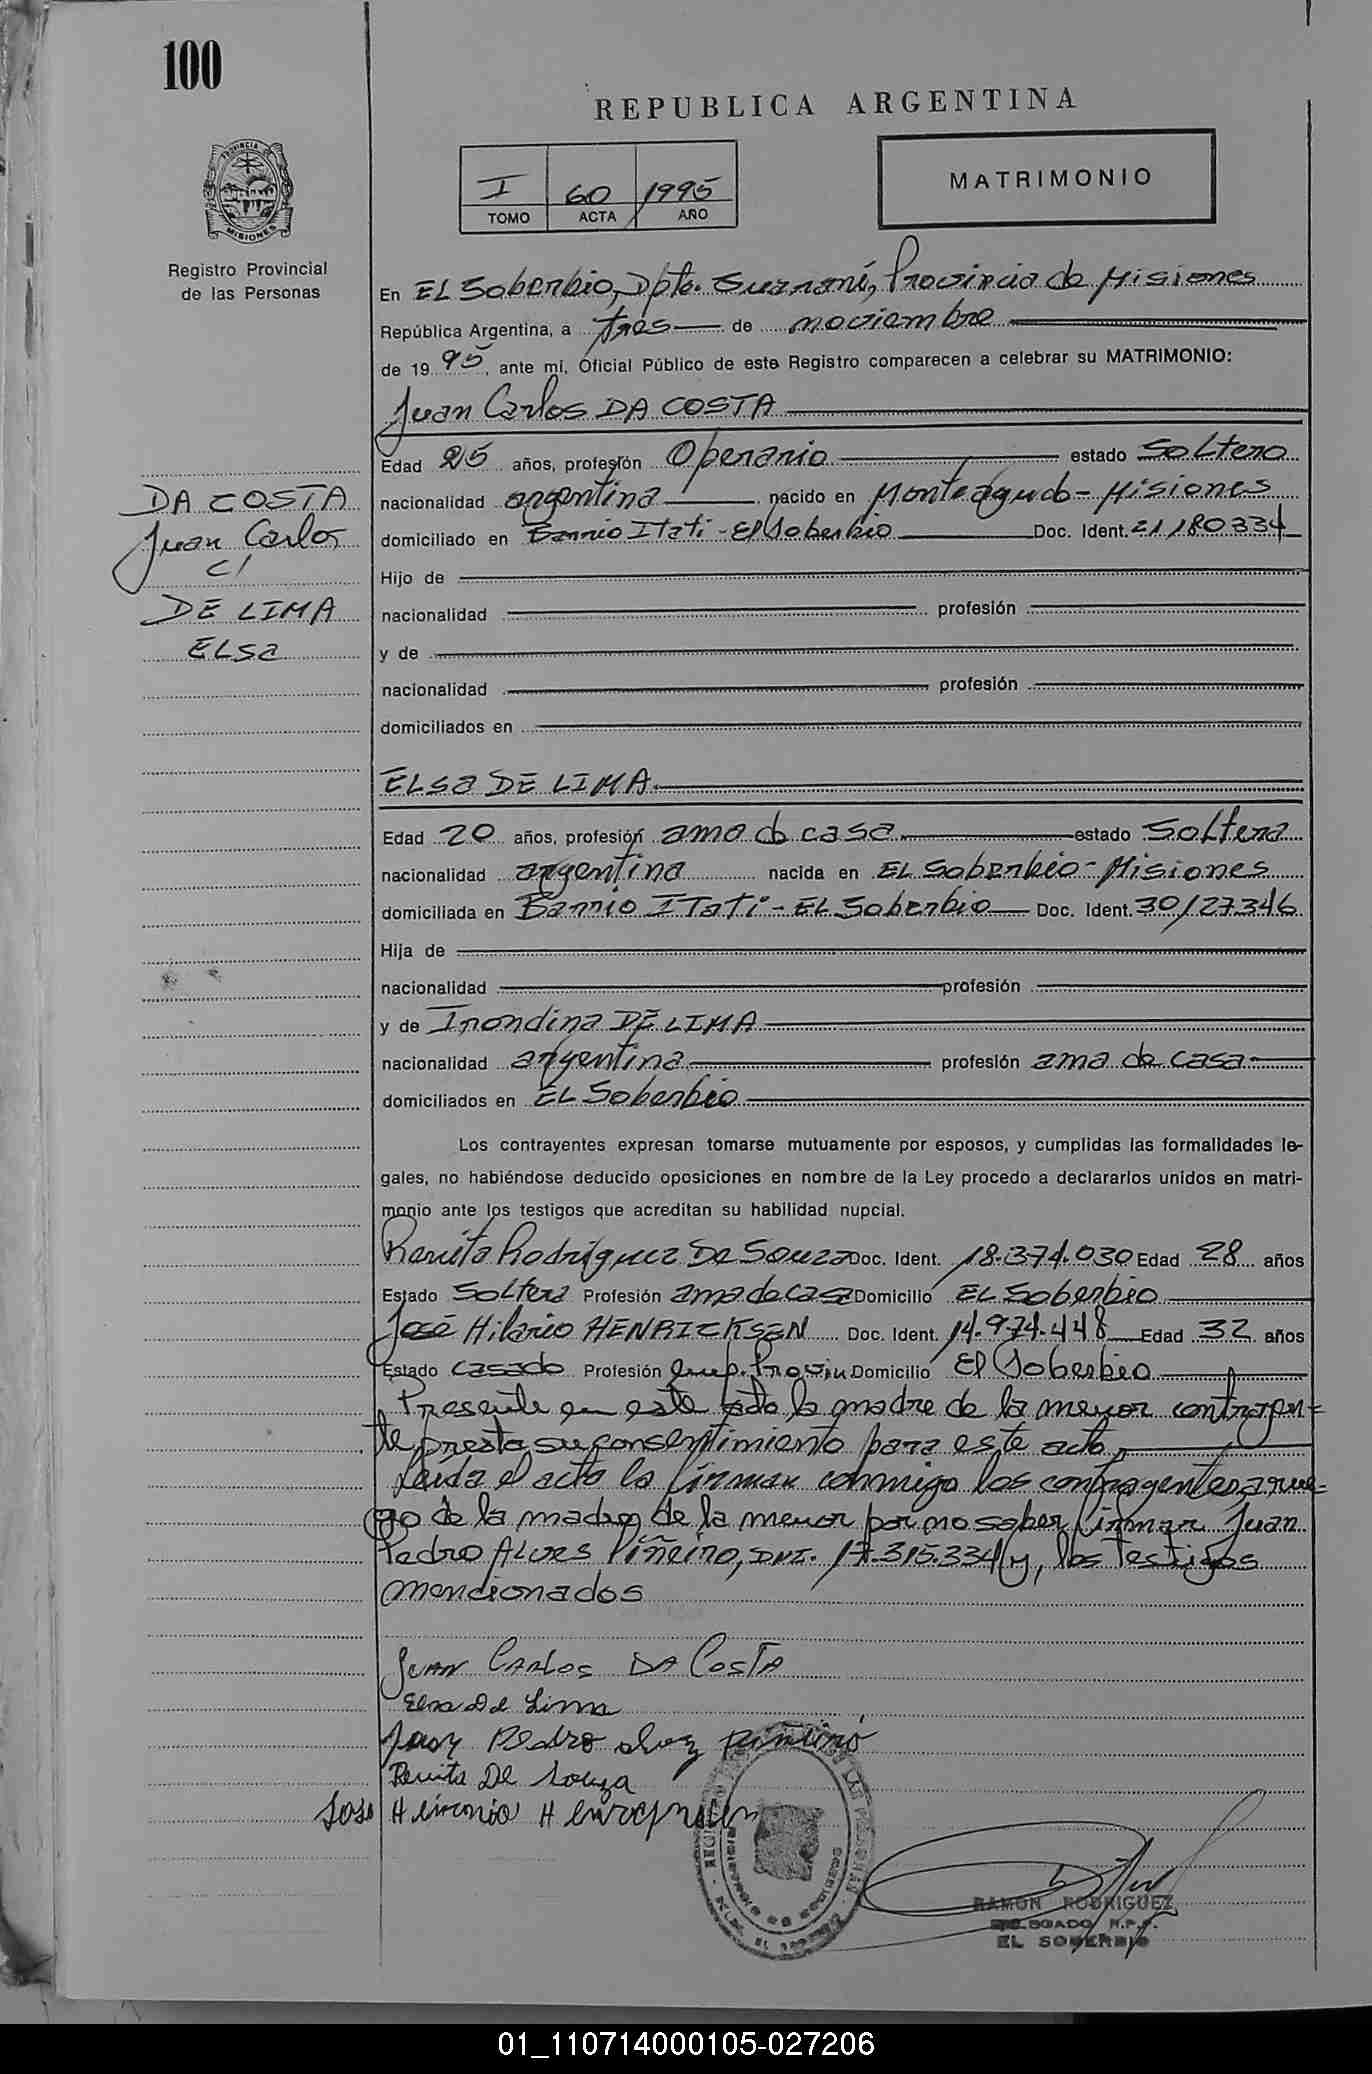 100
REPUBLICA ARGENTINA
I 60 1995
TOMO ACTA AÑO
MATRIMONIO
PROVINCIA DE
MISIONES
Registro Provincial
de las Personas
En EL Soberbio, Dpto. Guaraní, Provincia de Misiones
República Argentina, a tres de noviembre
de 19 95, ante mí, Oficial Público de este Registro comparecen a celebrar su MATRIMONIO:
Juan Carlos DA COSTA
Edad 25 años, profesión Operario estado Soltero
nacionalidad argentina nacido en Monteagudo - Misiones
domiciliado en Barrio Itati - El Soberbio Doc. Ident. 21.180.334
Hijo de
nacionalidad profesión
y de
nacionalidad profesión
domiciliados en
DA COSTA
Juan Carlos
C/
DE LIMA
ELSa
ELSa DE LIMA
Edad 20 años, profesión ama de casa estado Soltera
nacionalidad argentina nacida en EL Soberbio - Misiones
domiciliada en Barrio ITati - EL Soberbio Doc. Ident. 30127346
Hija de
nacionalidad profesión
y de Irondina DE LIMA
nacionalidad argentina profesión ama de casa
domiciliados en EL Soberbio
Los contrayentes expresan tomarse mutuamente por esposos, y cumplidas las formalidades le-
gales, no habiéndose deducido oposiciones en nombre de la Ley procedo a declararlos unidos en matri-
monio ante los testigos que acreditan su habilidad nupcial.
Renita Rodriguez De Souza Doc. Ident. 18.374.030 Edad 28 años
Estado Soltera Profesión ama de casa Domicilio EL Soberbio
José Hilario HENRICKSEN Doc. Ident. 14.974.448 Edad 32 años
Estado casado Profesión Emp. Provin Domicilio El Soberbio
Presente en este acto la madre de la menor contrayen=
te presta su consentimiento para este acto,
Leída el acta la firman conmigo los contrayentes, a rue=
go de la madre de la menor por no saber firmar Juan
Pedro ALVES Piñeiro, DNI. 17.315.334 y, los testigos
mencionados
JUAN CARLOS DA COSTA
Elsa De Lima
Pedro
Renita De Souza
Jose
RAMON RODRIGUEZ
DELEGADO R.P.P.
EL SOBERBIO
01_110714000105-027206